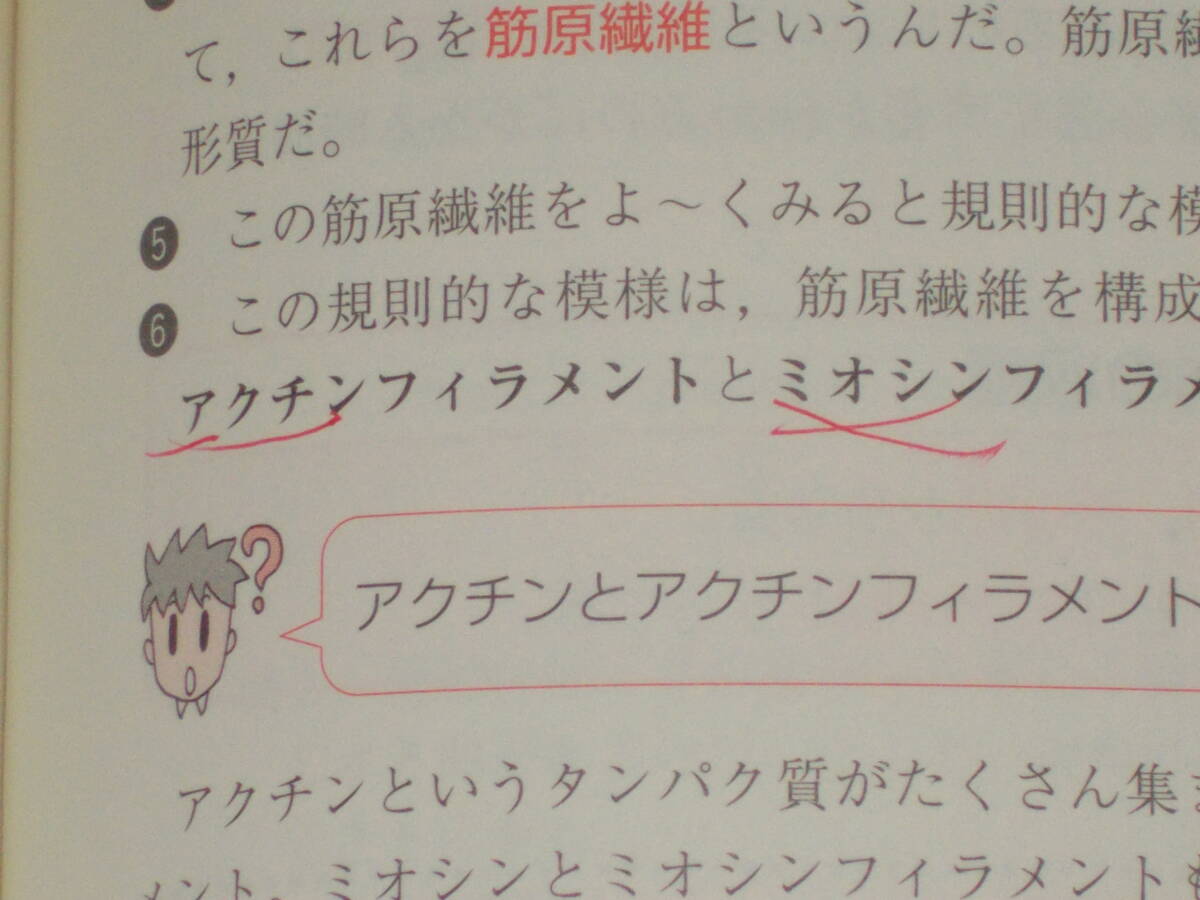 て，これらを筋原繊維というんだ。筋原
形質だ。
5 この筋原繊維をよ～くみると規則的な
6 この規則的な模様は，筋原繊維を構成
アクチンフィラメントとミオシンフィラメ
?
アクチンとアクチンフィラメント
アクチンというタンパク質がたくさん集
メント。ミオシンとミオシンフィラメント